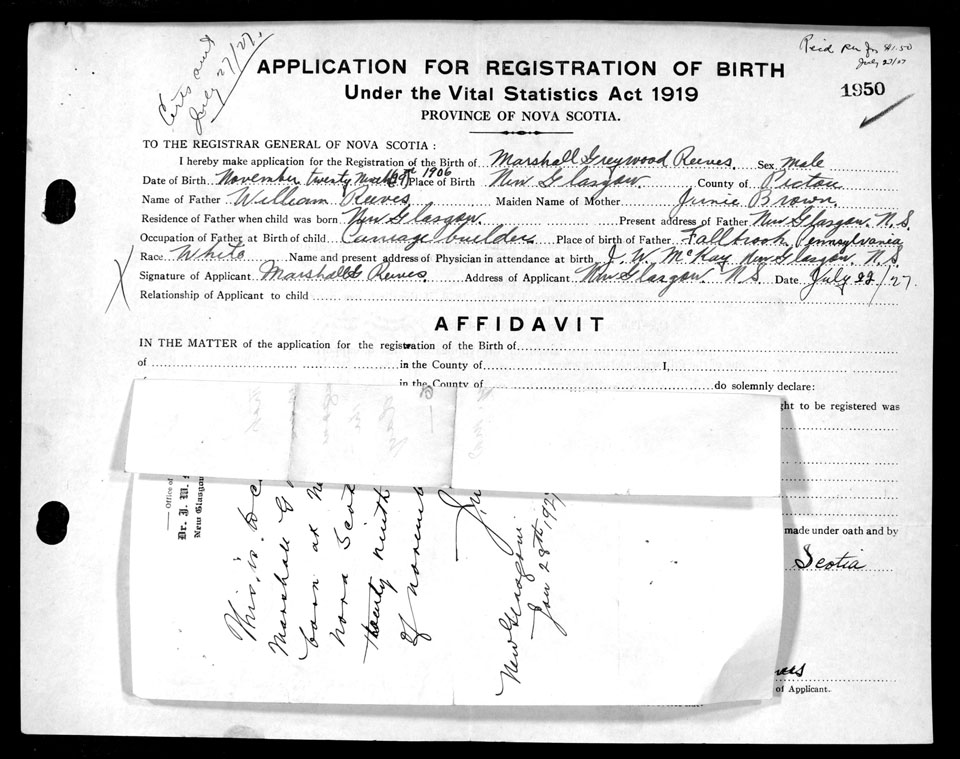 Certs sent
July 27/27.
Paid Rec for $1.50
July 27/27
APPLICATION FOR REGISTRATION OF BIRTH
Under the Vital Statistics Act 1919
1950
PROVINCE OF NOVA SCOTIA.
TO THE REGISTRAR GENERAL OF NOVA SCOTIA :
I hereby make application for the Registration of the Birth of Marshall Greywood Reeves. Sex Male
Date of Birth November twenty ninth 29th 1906 Place of Birth New Glasgow. County of Pictou
Name of Father William Reeves, Maiden Name of Mother Junie Brown.
Residence of Father when child was born New Glasgow. Present address of Father New Glasgow N.S.
Occupation of Father at Birth of child Carriage builder Place of birth of Father Fallbrook, Pennsylvania
Race White Name and present address of Physician in attendance at birth J. W. McKay New Glasgow, N.S.
Signature of Applicant Marshall G Reeves. Address of Applicant New Glasgow. N.S. Date July 22/27.
Relationship of Applicant to child
AFFIDAVIT
IN THE MATTER of the application for the registration of the Birth of
of in the County of I,
in the County of do solemnly declare:
ght to be registered was
made under oath and by
Scotia
of Applicant.
Office of
Dr. J. W.
New Glasgow
This is to ce
Marshall G
born at Ne
Nova Scot
twenty ninth
of Novemb
New Glasgow
Jan 28th 1927